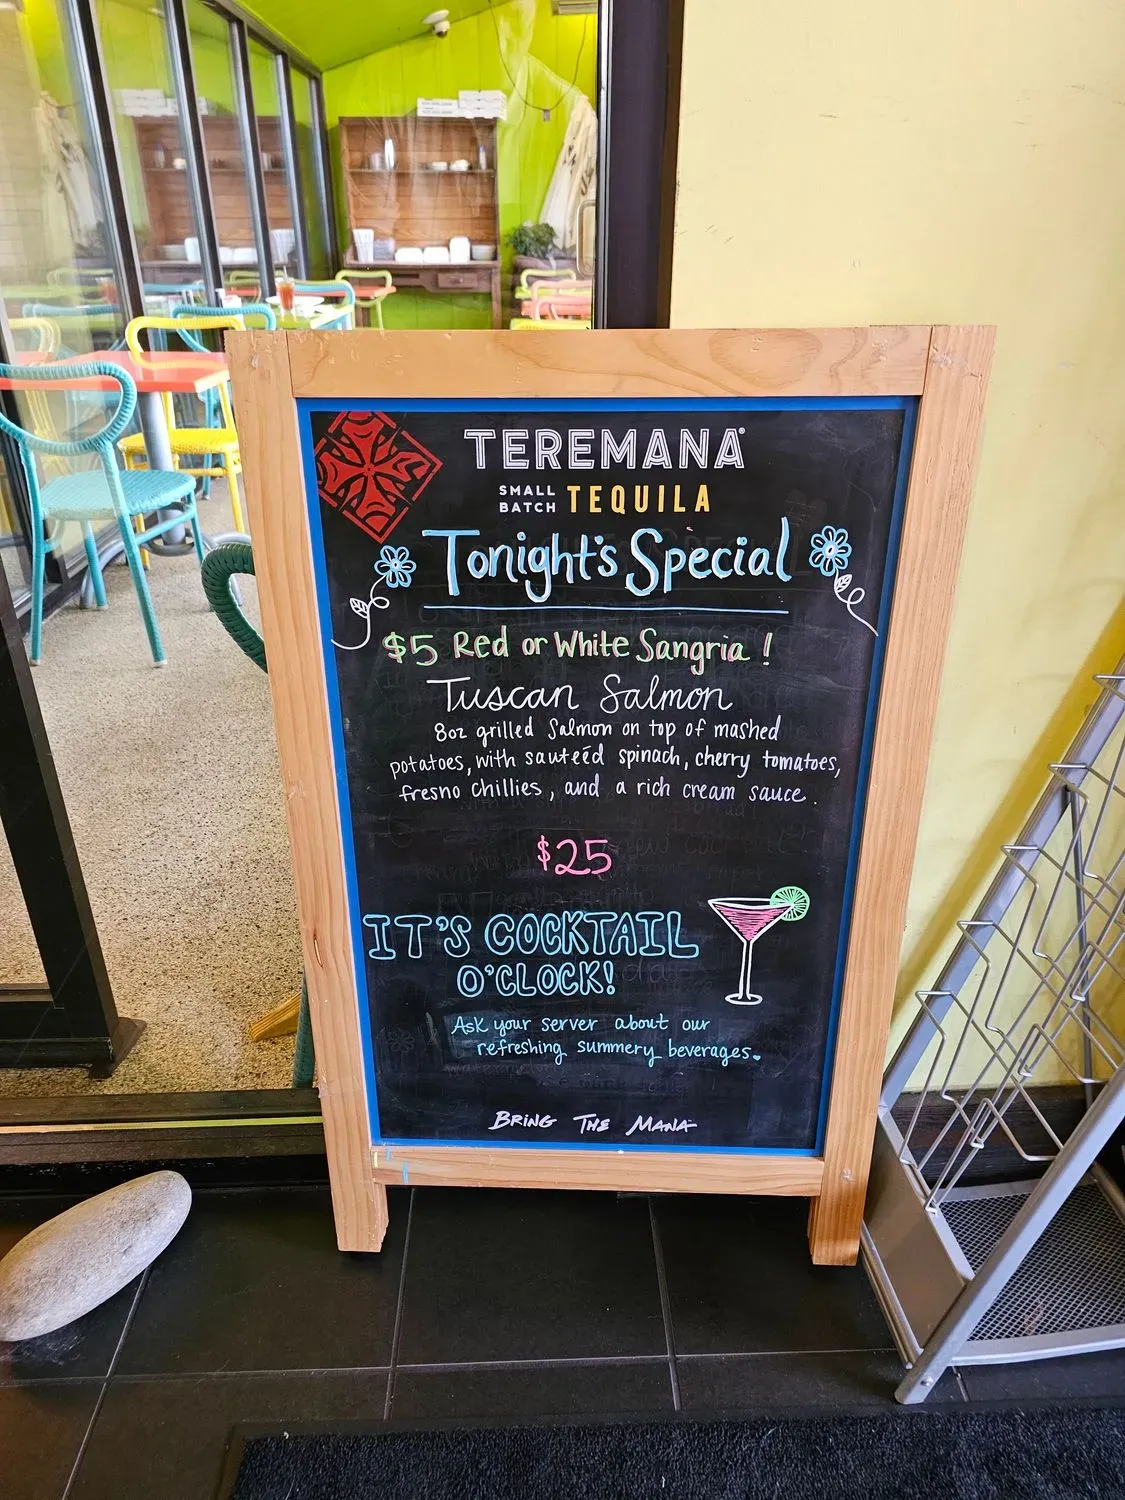 TEREMANA
SMALL BATCH TEQUILA
Tonight's Special
$5 Red or White Sangria!
Tuscan Salmon
8oz grilled Salmon on top of mashed
potatoes, with sauteéd spinach, cherry tomatoes,
fresno chillies, and a rich cream sauce.
$25
IT'S COCKTAIL
O'CLOCK!
Ask your server about our
refreshing summery beverages.
BRING THE MANA